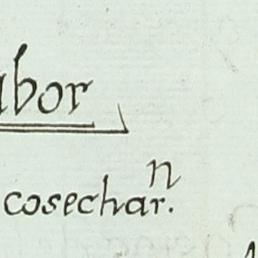 abor
cosecharⁿ.